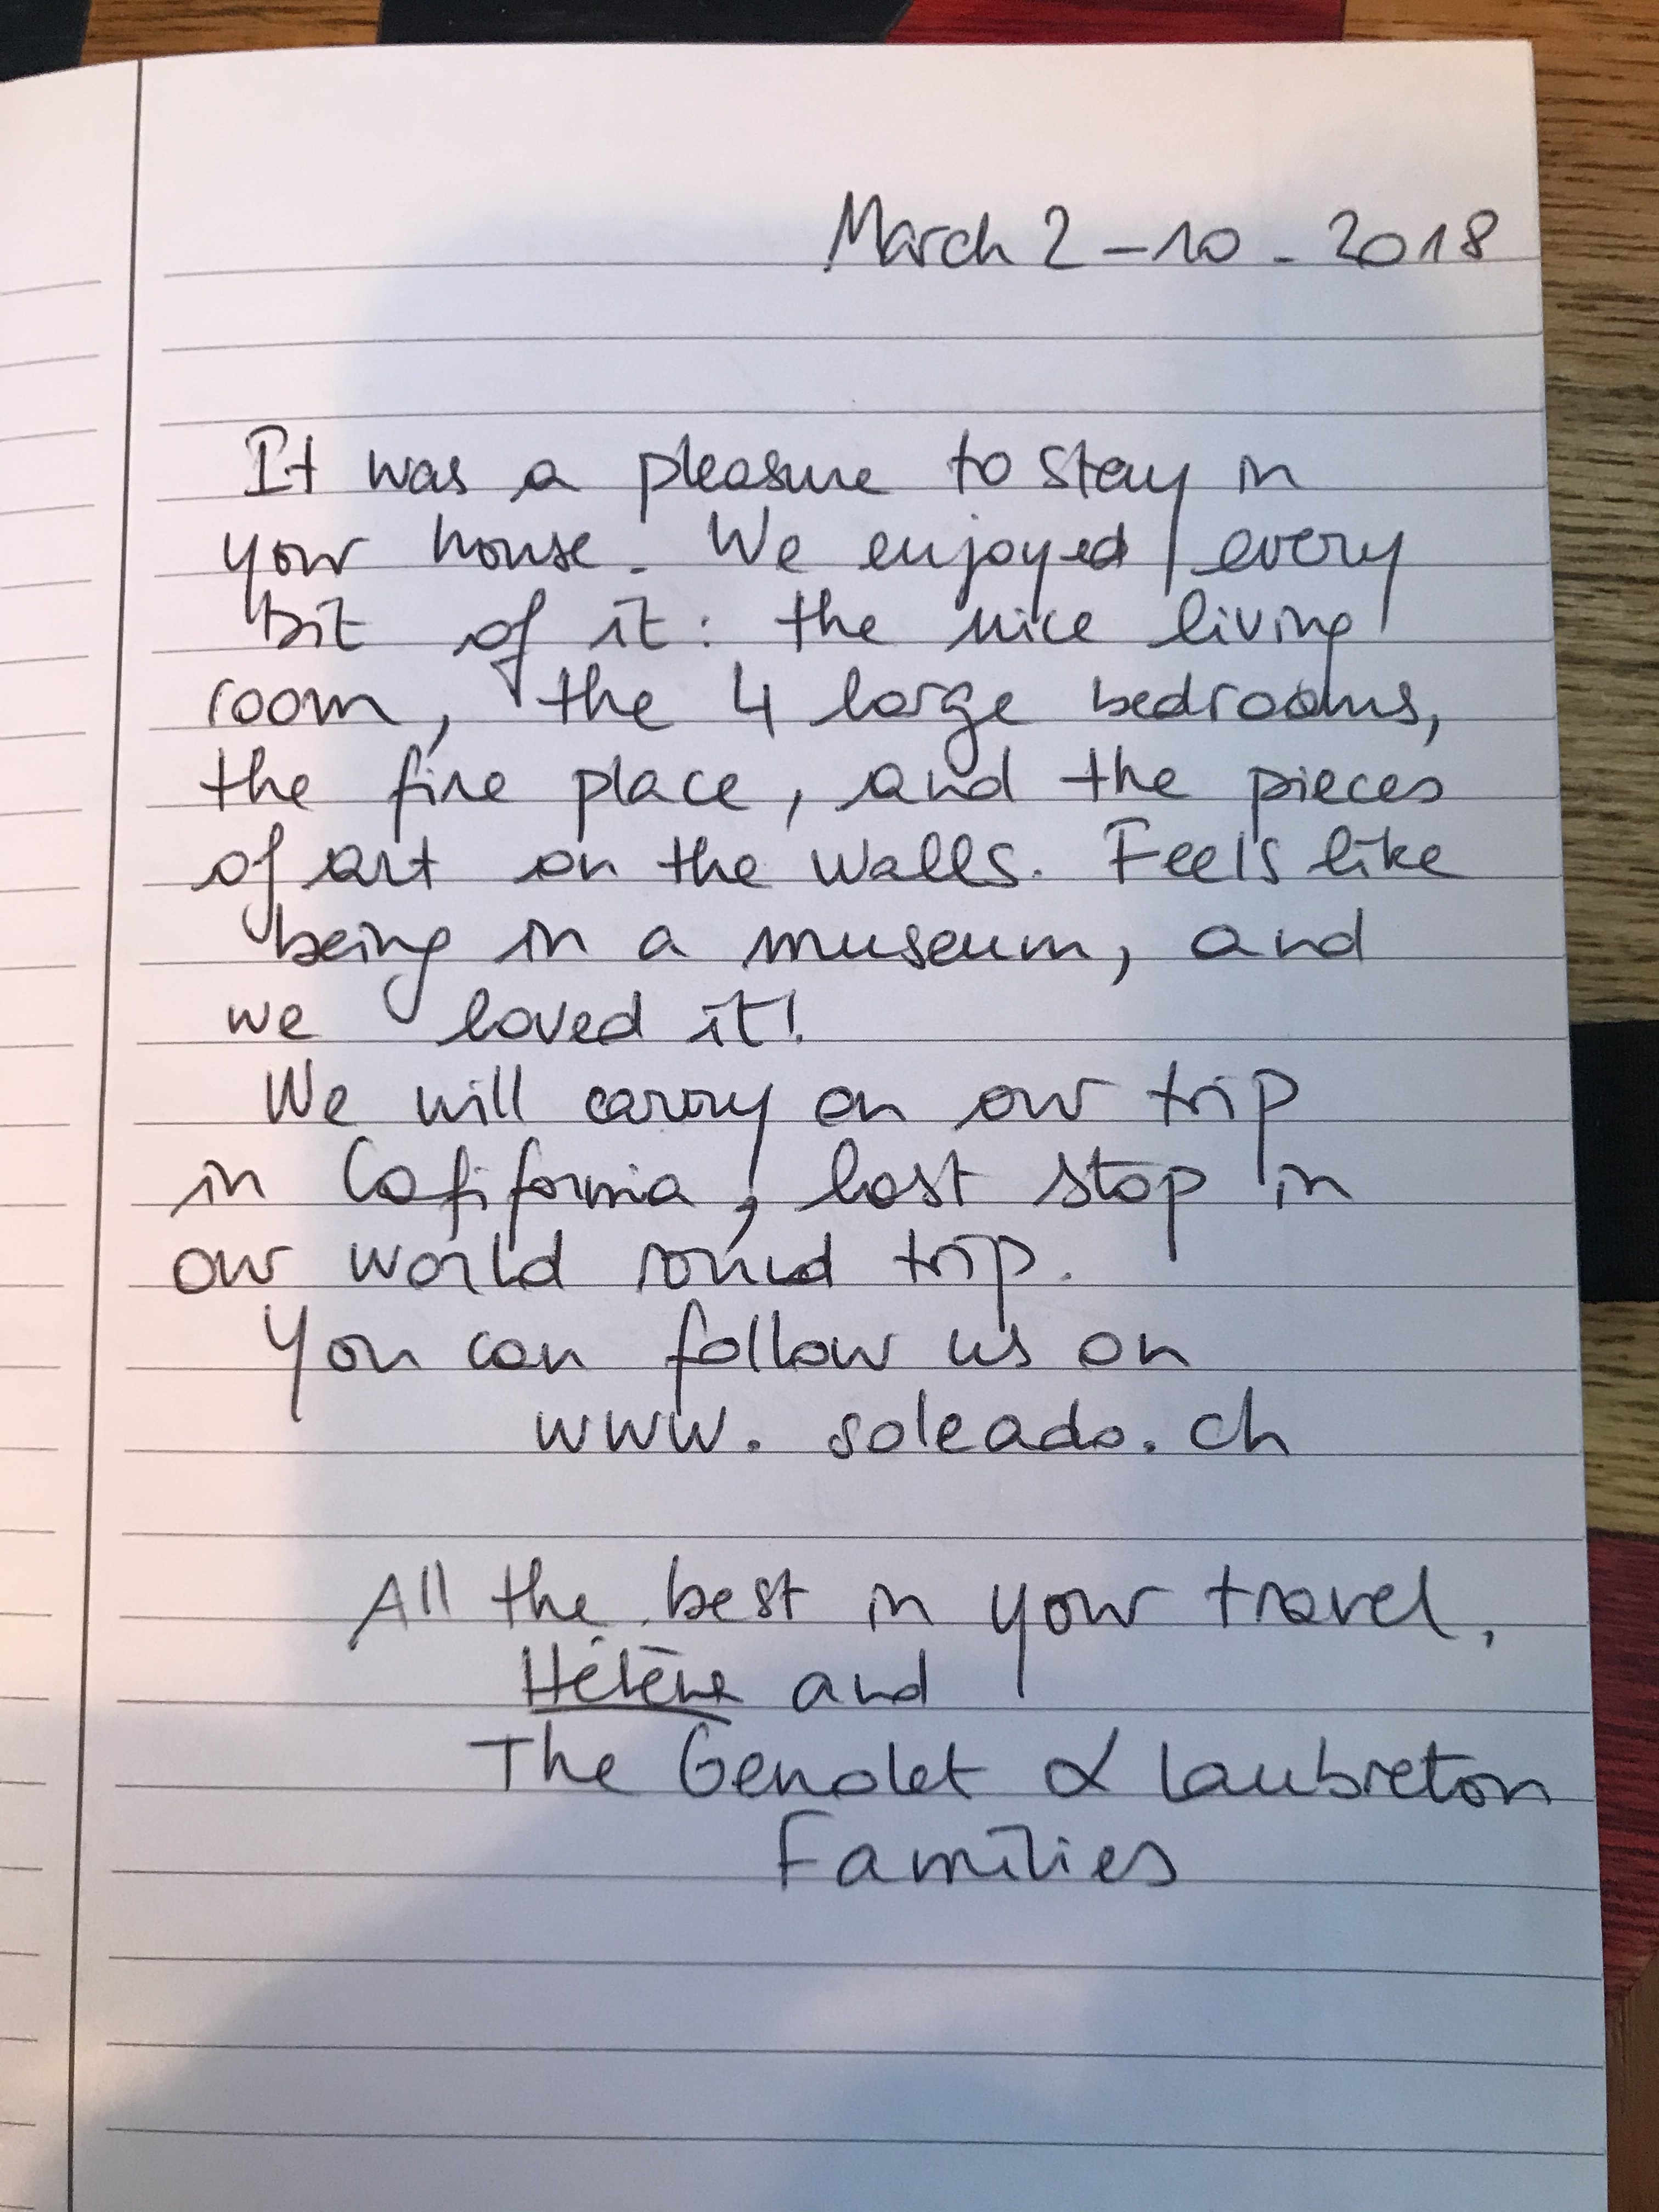 March 2-10-2018
It was a pleasure to stay in
your house. We enjoyed every
bit of it: the nice living
room, the 4 large bedrooms,
the fire place, and the pieces
of art on the walls. Feels like
being in a museum, and
we loved it!
We will carry on our trip
in California, last stop in
our world round trip.
You can follow us on
www.soleado.ch
All the best in your travel,
Hélène and
The Genolet & Laubreton
Families